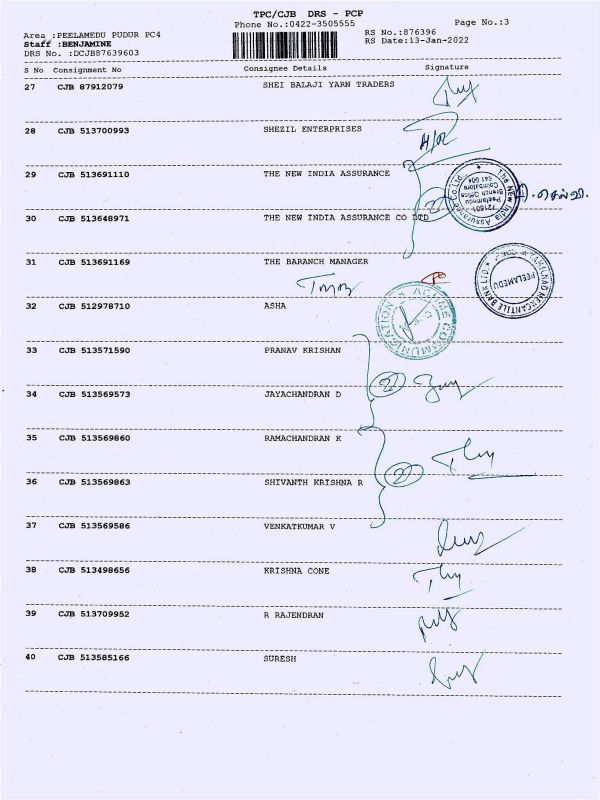 TPC/CJB DRS - PCP
Phone No.:0422-3505555
Page No.:3
Area :PEELAMEDU PUDUR PC4
RS No.:876396
Staff :BENJAMINE
RS Date:13-Jan-2022
DRS No. :DCJB87639603
S No Consignment No Consignee Details Signature
27 CJB 87912079 SHEI BALAJI YARN TRADERS
28 CJB 513700993 SHEZIL ENTERPRISES
29 CJB 513691110 THE NEW INDIA ASSURANCE
The New India Assurance Co Ltd.
721601
Peelamedu
Branch Office
Coimbatore
641 004
30 CJB 513648971 THE NEW INDIA ASSURANCE CO LTD
2
31 CJB 513691169 THE BARANCH MANAGER
TAMILNAD MERCANTILE BANK LTD.
PEELAMEDU
32 CJB 512978710 ASHA
ACUME COMMUNICATION
33 CJB 513571590 PRANAV KRISHAN
34 CJB 513569573 JAYACHANDRAN D
2
35 CJB 513569860 RAMACHANDRAN K
36 CJB 513569863 SHIVANTH KRISHNA R
2
37 CJB 513569586 VENKATKUMAR V
38 CJB 513498656 KRISHNA CONE
39 CJB 513709952 R RAJENDRAN
40 CJB 513585166 SURESH